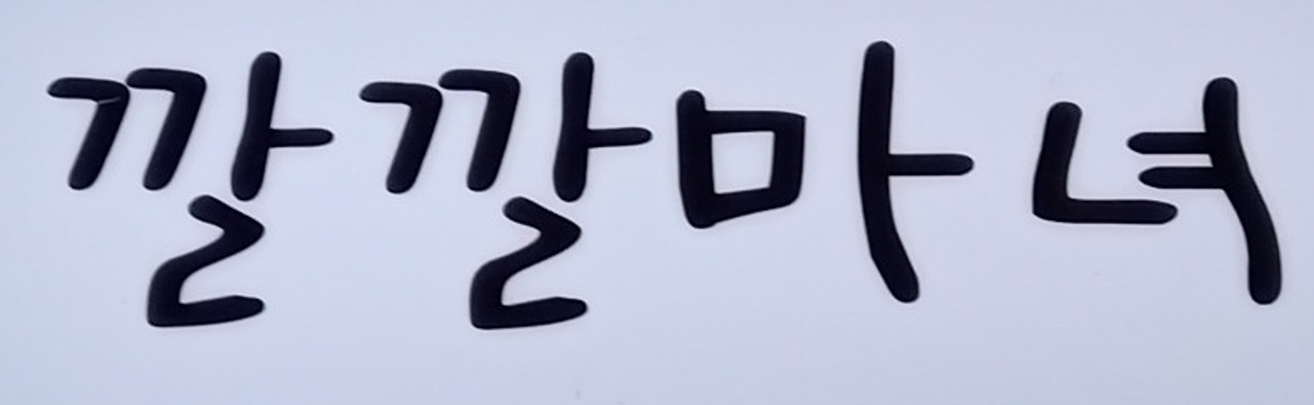 깔깔마녀